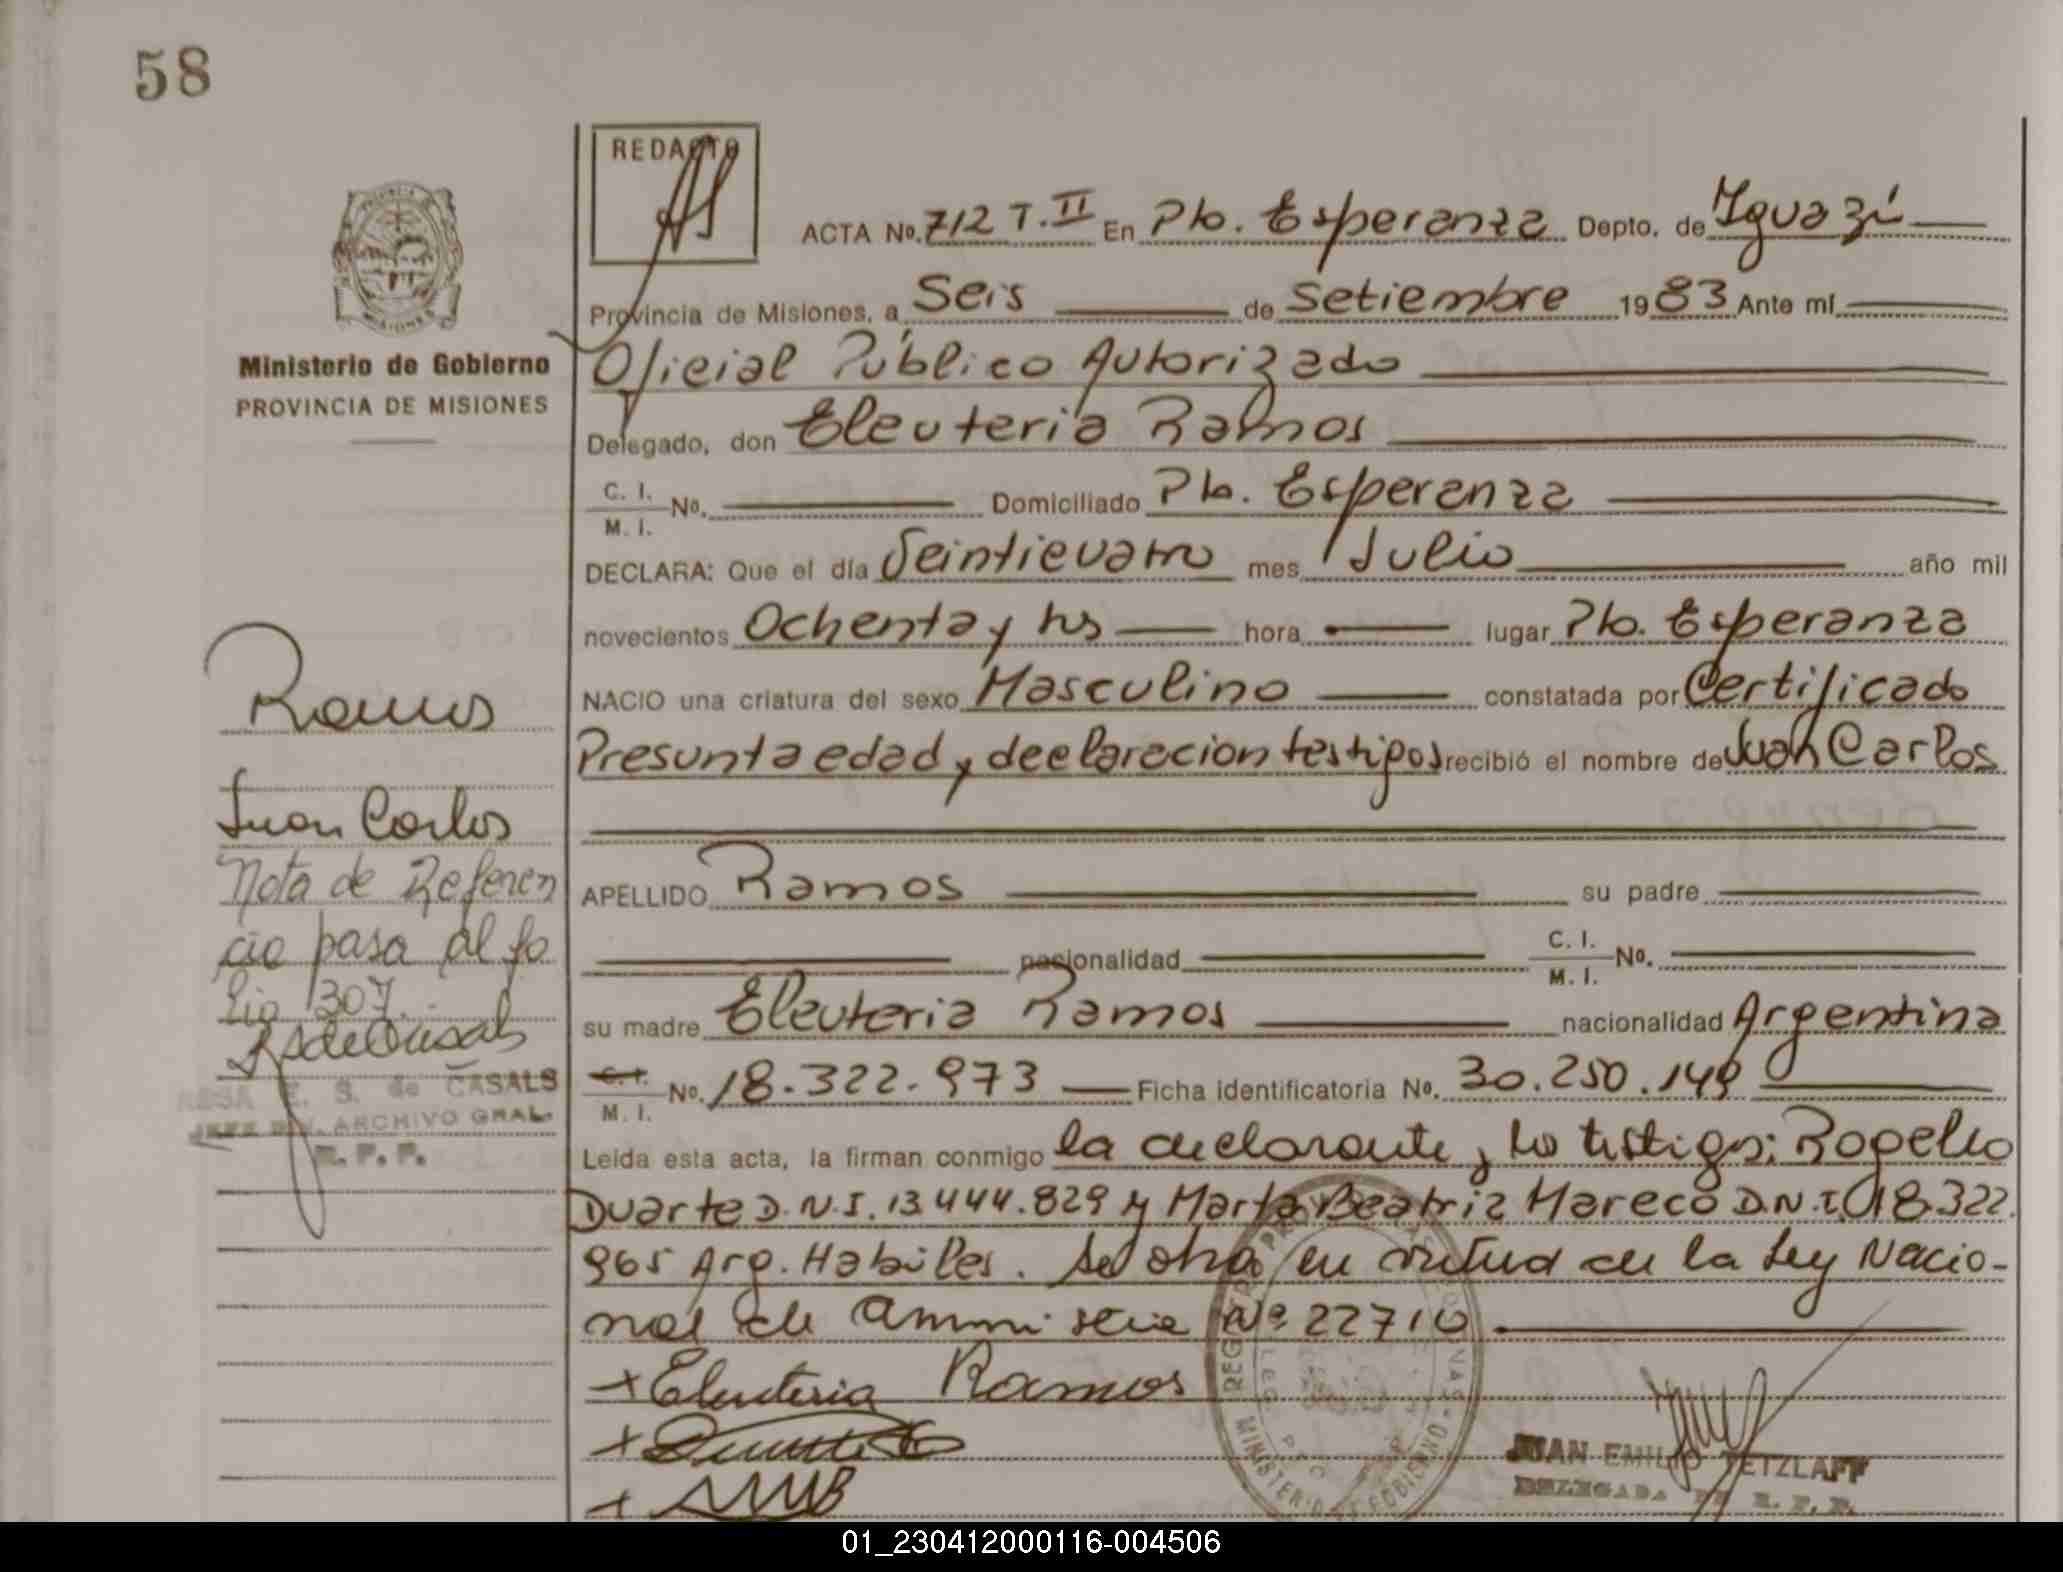 58
REDACTO
ACTA Nº. 712 T. II En Pto. Esperanza Depto. de Iguazú
Provincia de Misiones, a Seis de Setiembre 1983 Ante mí
Oficial Público Autorizado
Ministerio de Gobierno
PROVINCIA DE MISIONES
Delegado, don Eleuteria Ramos
C. I. M. I. Nº. Domiciliado Pto. Esperanza
DECLARA: Que el día Veinticuatro mes Julio año mil
novecientos Ochenta y tres hora lugar Pto. Esperanza
NACIO una criatura del sexo Masculino constatada por Certificado
Presunta edad y declaracion testigos recibió el nombre de Juan Carlos
Ramos
Juan Carlos
Nota de Referen
cia pasa al fo
lio 307.
APELLIDO Ramos su padre
nacionalidad C. I. M. I. Nº.
su madre Eleuteria Ramos nacionalidad Argentina
C. I. M. I. Nº. 18.322.973 Ficha identificatoria Nº. 30.250.149
ROSA E. S. de CASALS
JEFE DIV. ARCHIVO GRAL.
R. P. P.
Leída esta acta, la firman conmigo la declarante y los testigos: Rogelio
Duarte D.N.I. 13.444.829 y Marta Beatriz Mareco D.N.I. 18.322.
965 Arg. Habiles. Se labra en virtud de la Ley Nacio-
nal de Amnistia Nº 22710
+ Eleuteria Ramos
JUAN EMILIO TETZLAFF
DELEGADO DE R. P. P.
MINISTERIO DE GOBIERNO
01_230412000116-004506